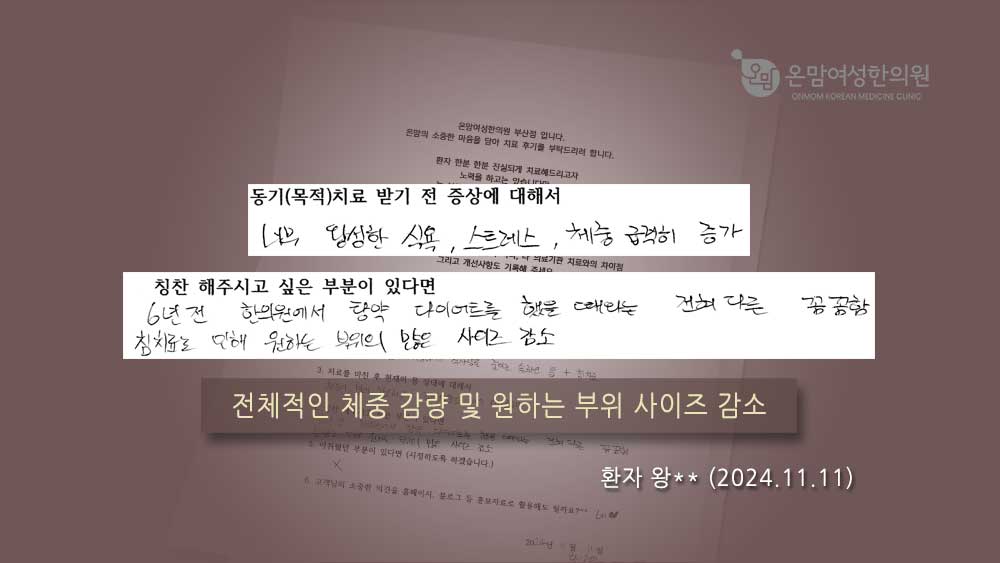 온맘
온맘여성한의원
ONMOM KOREAN MEDICINE CLINIC
온맘여성한의원 부산점 입니다.
온맘의 소중한 마음을 담아 치료 후기를 부탁드리려 합니다.
환자 한분 한분 진실되게 치료해드리고자
노력을 하고는 있습니다만
동기(목적)치료 받기 전 증상에 대해서
너무 왕성한 식욕, 스트레스, 체중 급격히 증가
타 의료기관 치료와의 차이점
그리고 개선사항도 기록해 주세요
칭찬 해주시고 싶은 부분이 있다면
6년전 한의원에서 탕약 다이어트를 했을 때와는 전혀 다른 꼼꼼함
침치료로 인해 원하는 부위의 많은 사이즈 감소
3. 치료를 마친 후 현재의 몸 상태에 대해서
전체적인 체중 감량 및 원하는 부위 사이즈 감소
5. 아쉬웠던 부분이 있다면 (시정하도록 하겠습니다.)
X
환자 왕** (2024.11.11)
6. 고객님의 소중한 의견을 홈페이지, 블로그 등 홍보자료로 활용해도 될까요?^^ 네